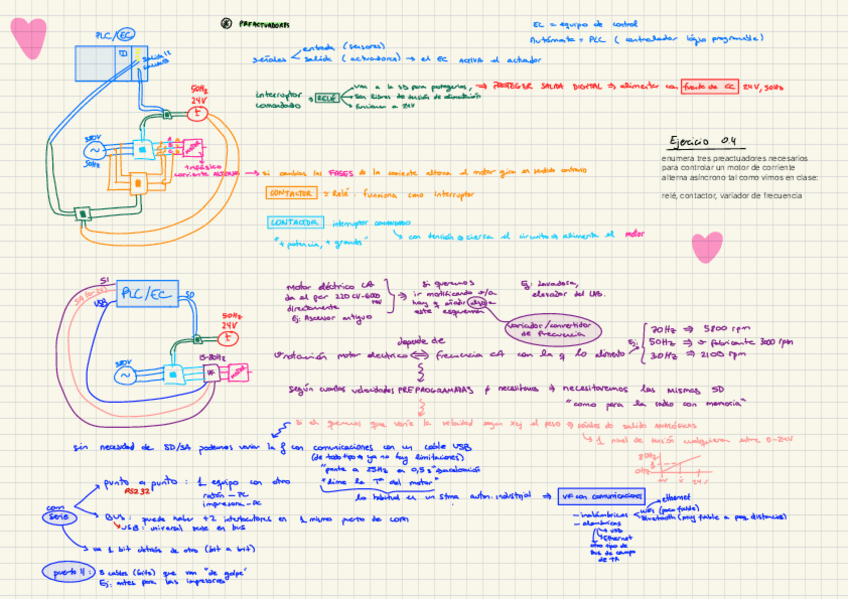 PREACTUADORES
EC = equipo de control
Autómata = PLC (controlador lógico programable)
PLC/EC
señales
entrada (sensores)
salida (actuadores) → el EC activa el actuador
interruptor comandado = RELÉ
van a la SD para protegerlas
funcionan a 24V
→ PROTEGER SALIDA DIGITAL → alimentar con fuente de CC 24V, 50Hz
50Hz
24V
±
trifásico
corriente ALTERNA → si cambias las FASES de la corriente alterna el motor gira en sentido contrario
CONTACTOR = Relé. Funciona como interruptor
CONTACTOR interruptor comandado
"+ potencia, + grande"
con tensión cierra el circuito y alimenta el motor
Ejercicio 0.4
enumera tres preactuadores necesarios
para controlar un motor de corriente
alterna asíncrono tal como vimos en clase:
relé, contactor, variador de frecuencia
PLC/EC
SD
USB
50Hz
24V
±
VF
Motor eléctrico CA
directamente
Ej: Ascensor antiguo
si queremos
ir modificando
hay q añadir algo a
este esquema
Ej: lavadora,
elevador del LAB.
variador/convertidor
de frecuencia
depende de
rotación motor electrico ⇔ frecuencia CA con la q lo alimento
Ej:
70Hz ⇒ 5800 rpm
50Hz ⇒ fabricante 3000 rpm
30Hz ⇒ 2100 rpm
según cuantas velocidades PREPROGRAMADAS necesitamos → necesitaremos las mismas SD
"como para la radio con memoria"
si el queremos que varíe la velocidad según el peso → señales de salida ANALÓGICAS
→ 1 nivel de tensión cualquiera entre 0-24V
sin necesidad de SD/SA podemos variar la f con comunicaciones con un cable USB
(de todo tipo ya no hay limitaciones)
"ponte a 25Hz en 0,5 s" aceleración
"dime la Tª del motor"
lo habitual en un stma autom. industrial ⇒ VF con comunicaciones
- inalámbricas
- alámbricas
WiFi (poco fiable)
Bluetooth (muy fiable a pocas distancias)
ethernet
USB
Ethernet
otro tipo de
bus de campo
com serie
punto a punto : 1 equipo con otro
RS232
ratón - PC
impresora - PC
BUS : puede haber +2 interlocutores en 1 mismo puerto de com
USB: universal serie en bus
va 1 bit detrás de otro (bit a bit)
puerto // : 8 cables (bits) que van "de golpe"
Ej: antes para las impresoras